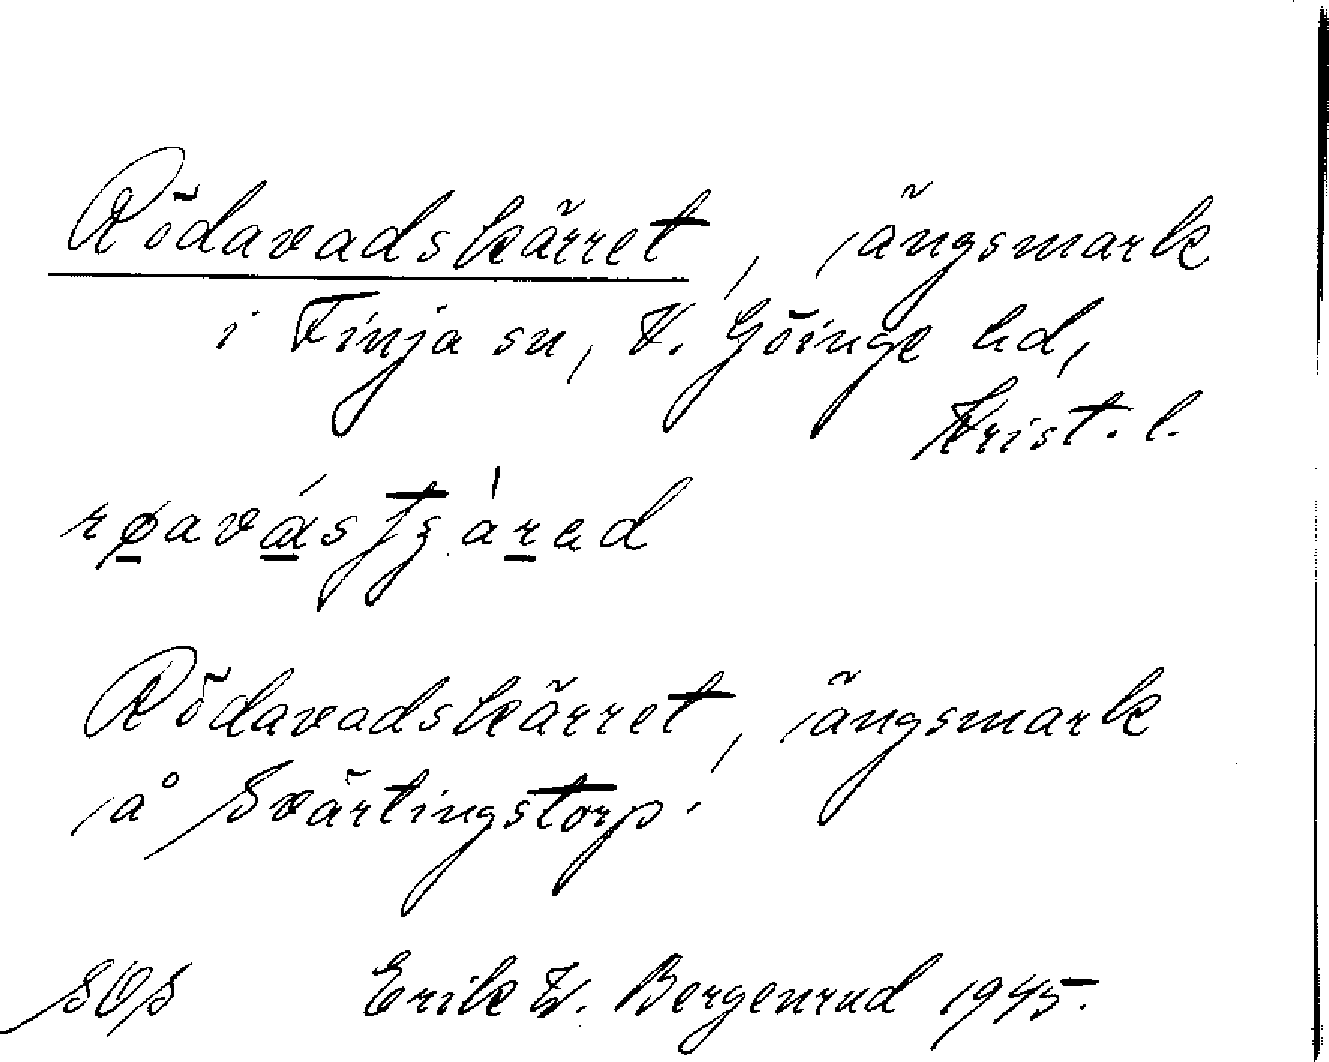 Rödavadskärret, ängsmark
i Finja sn, V. Göinge hd,
Krist. l.
Rödavadskärret, ängsmark
å Svärtingstorp.
SOS Erik W. Bergenrud 1945.